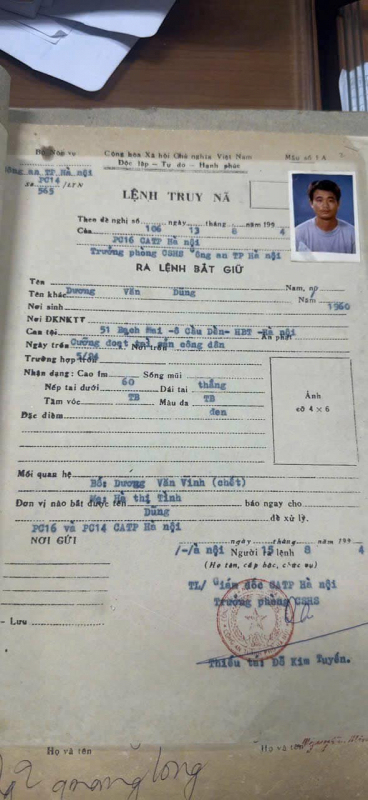 Bộ Nội vụ
Cộng hòa Xã hội Chủ nghĩa Việt Nam
Mẫu số 1A
Công an TP Hà nội
Độc lập — Tự do — Hạnh phúc
PC14
Số 565 /LTN
LỆNH TRUY NÃ
Theo đề nghị số 106 ngày 13 tháng 8 năm 1994
Của PC16 CATP Hà nội
Trưởng phòng CSHS Công an TP Hà nội
RA LỆNH BẮT GIỮ
Tên Dương Văn Dũng Nam, nữ
Tên khác
Nơi sinh 1960
Nơi ĐKNKTT
51 Bạch Mai - Cầu Dền- HBT - Hà nội
Can tội Án phạt
Cưỡng đoạt sản công dân
Ngày trốn Nơi trốn
Trường hợp trốn
Nhận dạng: Cao 1m 60 Sống mũi thẳng
Nếp tai dưới Dái tai
Tầm vóc TB Màu da TB
Đặc điểm đen
Ảnh
cỡ 4 × 6
Mối quan hệ
Bố: Dương Văn Vinh (chết)
Mẹ: Hà thị Tình
Đơn vị nào bắt được tên Dũng báo ngay cho
PC16 và PC14 CATP Hà nội để xử lý.
NƠI GỬI
Hà nội ngày 15 tháng 8 năm 1994
Người ra lệnh
(Họ tên, cấp bậc, chức vụ)
TL/ Giám đốc CATP Hà nội
Trưởng phòng CSHS
Thiếu tá: Đỗ Kim Tuyến.
- Lưu
Họ và tên
Họ và tên
quang long